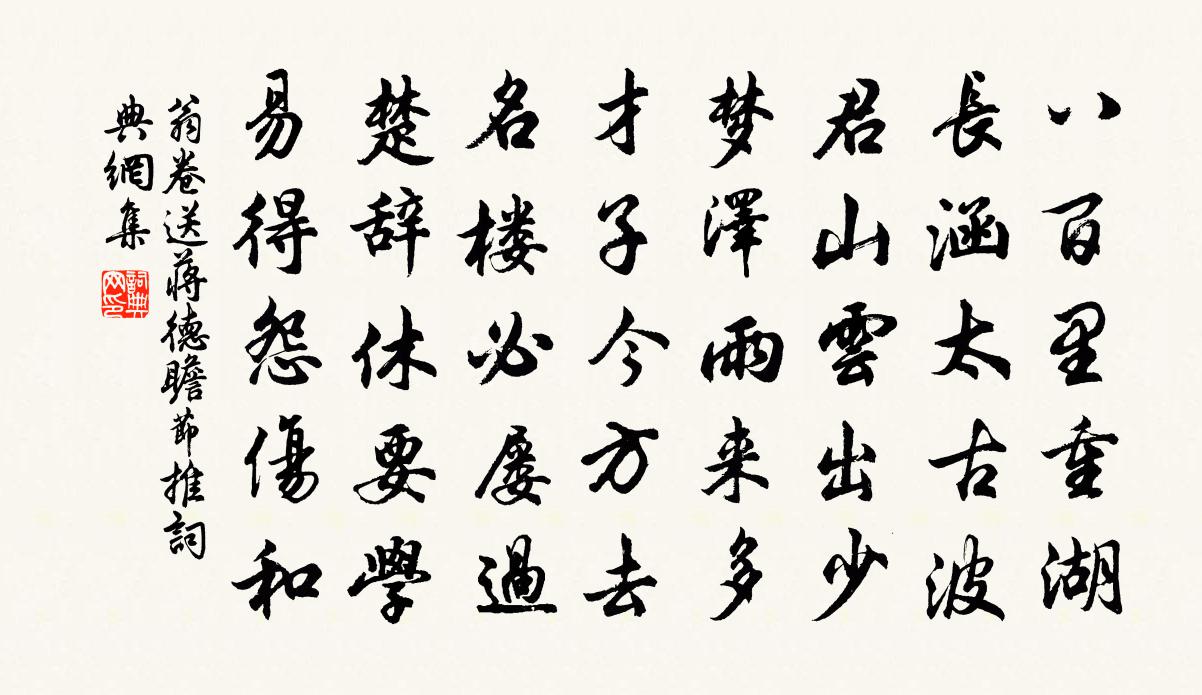 八百里重湖
長涵太古波
君山雲出少
梦澤雨来多
才子今方去
名楼必屡過
楚辞休要學
易得怨傷和
翁卷送蔣德瞻節推詞
典網集
詞典網印